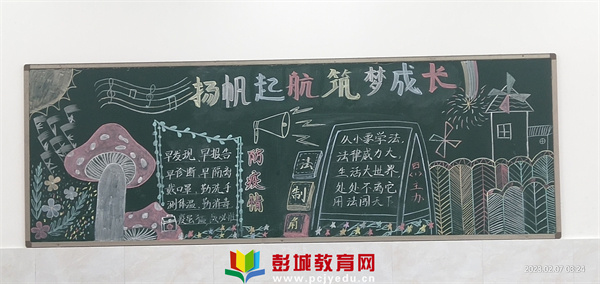 扬帆起航 筑梦成长
早发现,早报告
早诊断,早隔离
戴口罩,勤洗手
测体温,勤消毒
防疫情
法制角
从小要学法,
法律威力大,
生活大世界
处处不离它
用法闯天下
彭城教育网
www.pcjyedu.cn
2023.02.07 03:24